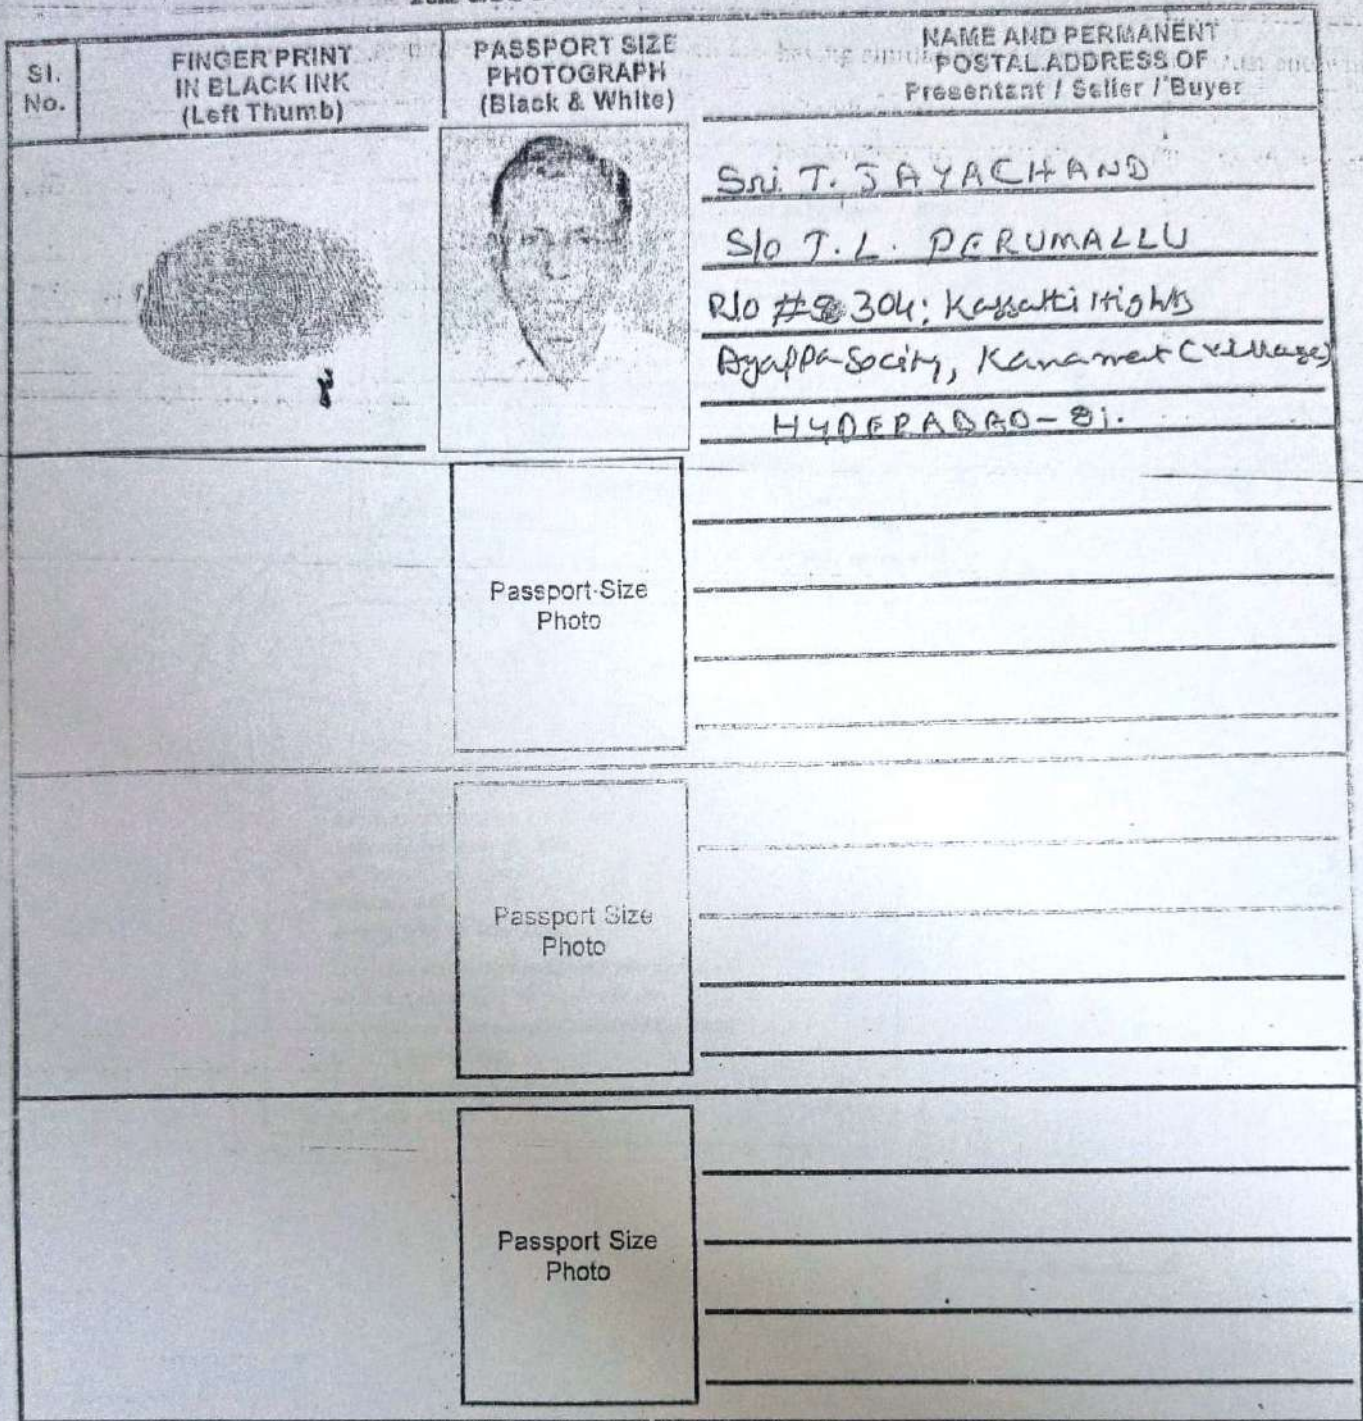 Sl.
No.
FINGER PRINT
IN BLACK INK
(Left Thumb)
PASSPORT SIZE
PHOTOGRAPH
(Black & White)
NAME AND PERMANENT
POSTAL ADDRESS OF
Presentant / Seller / Buyer
Sri. T. JAYACHAND
S/o T. L. PERUMALLU
R/o # 304; Hights
Ayappa Socity, (village)
HYDERABAD - 81.
Passport Size
Photo
Passport Size
Photo
Passport Size
Photo